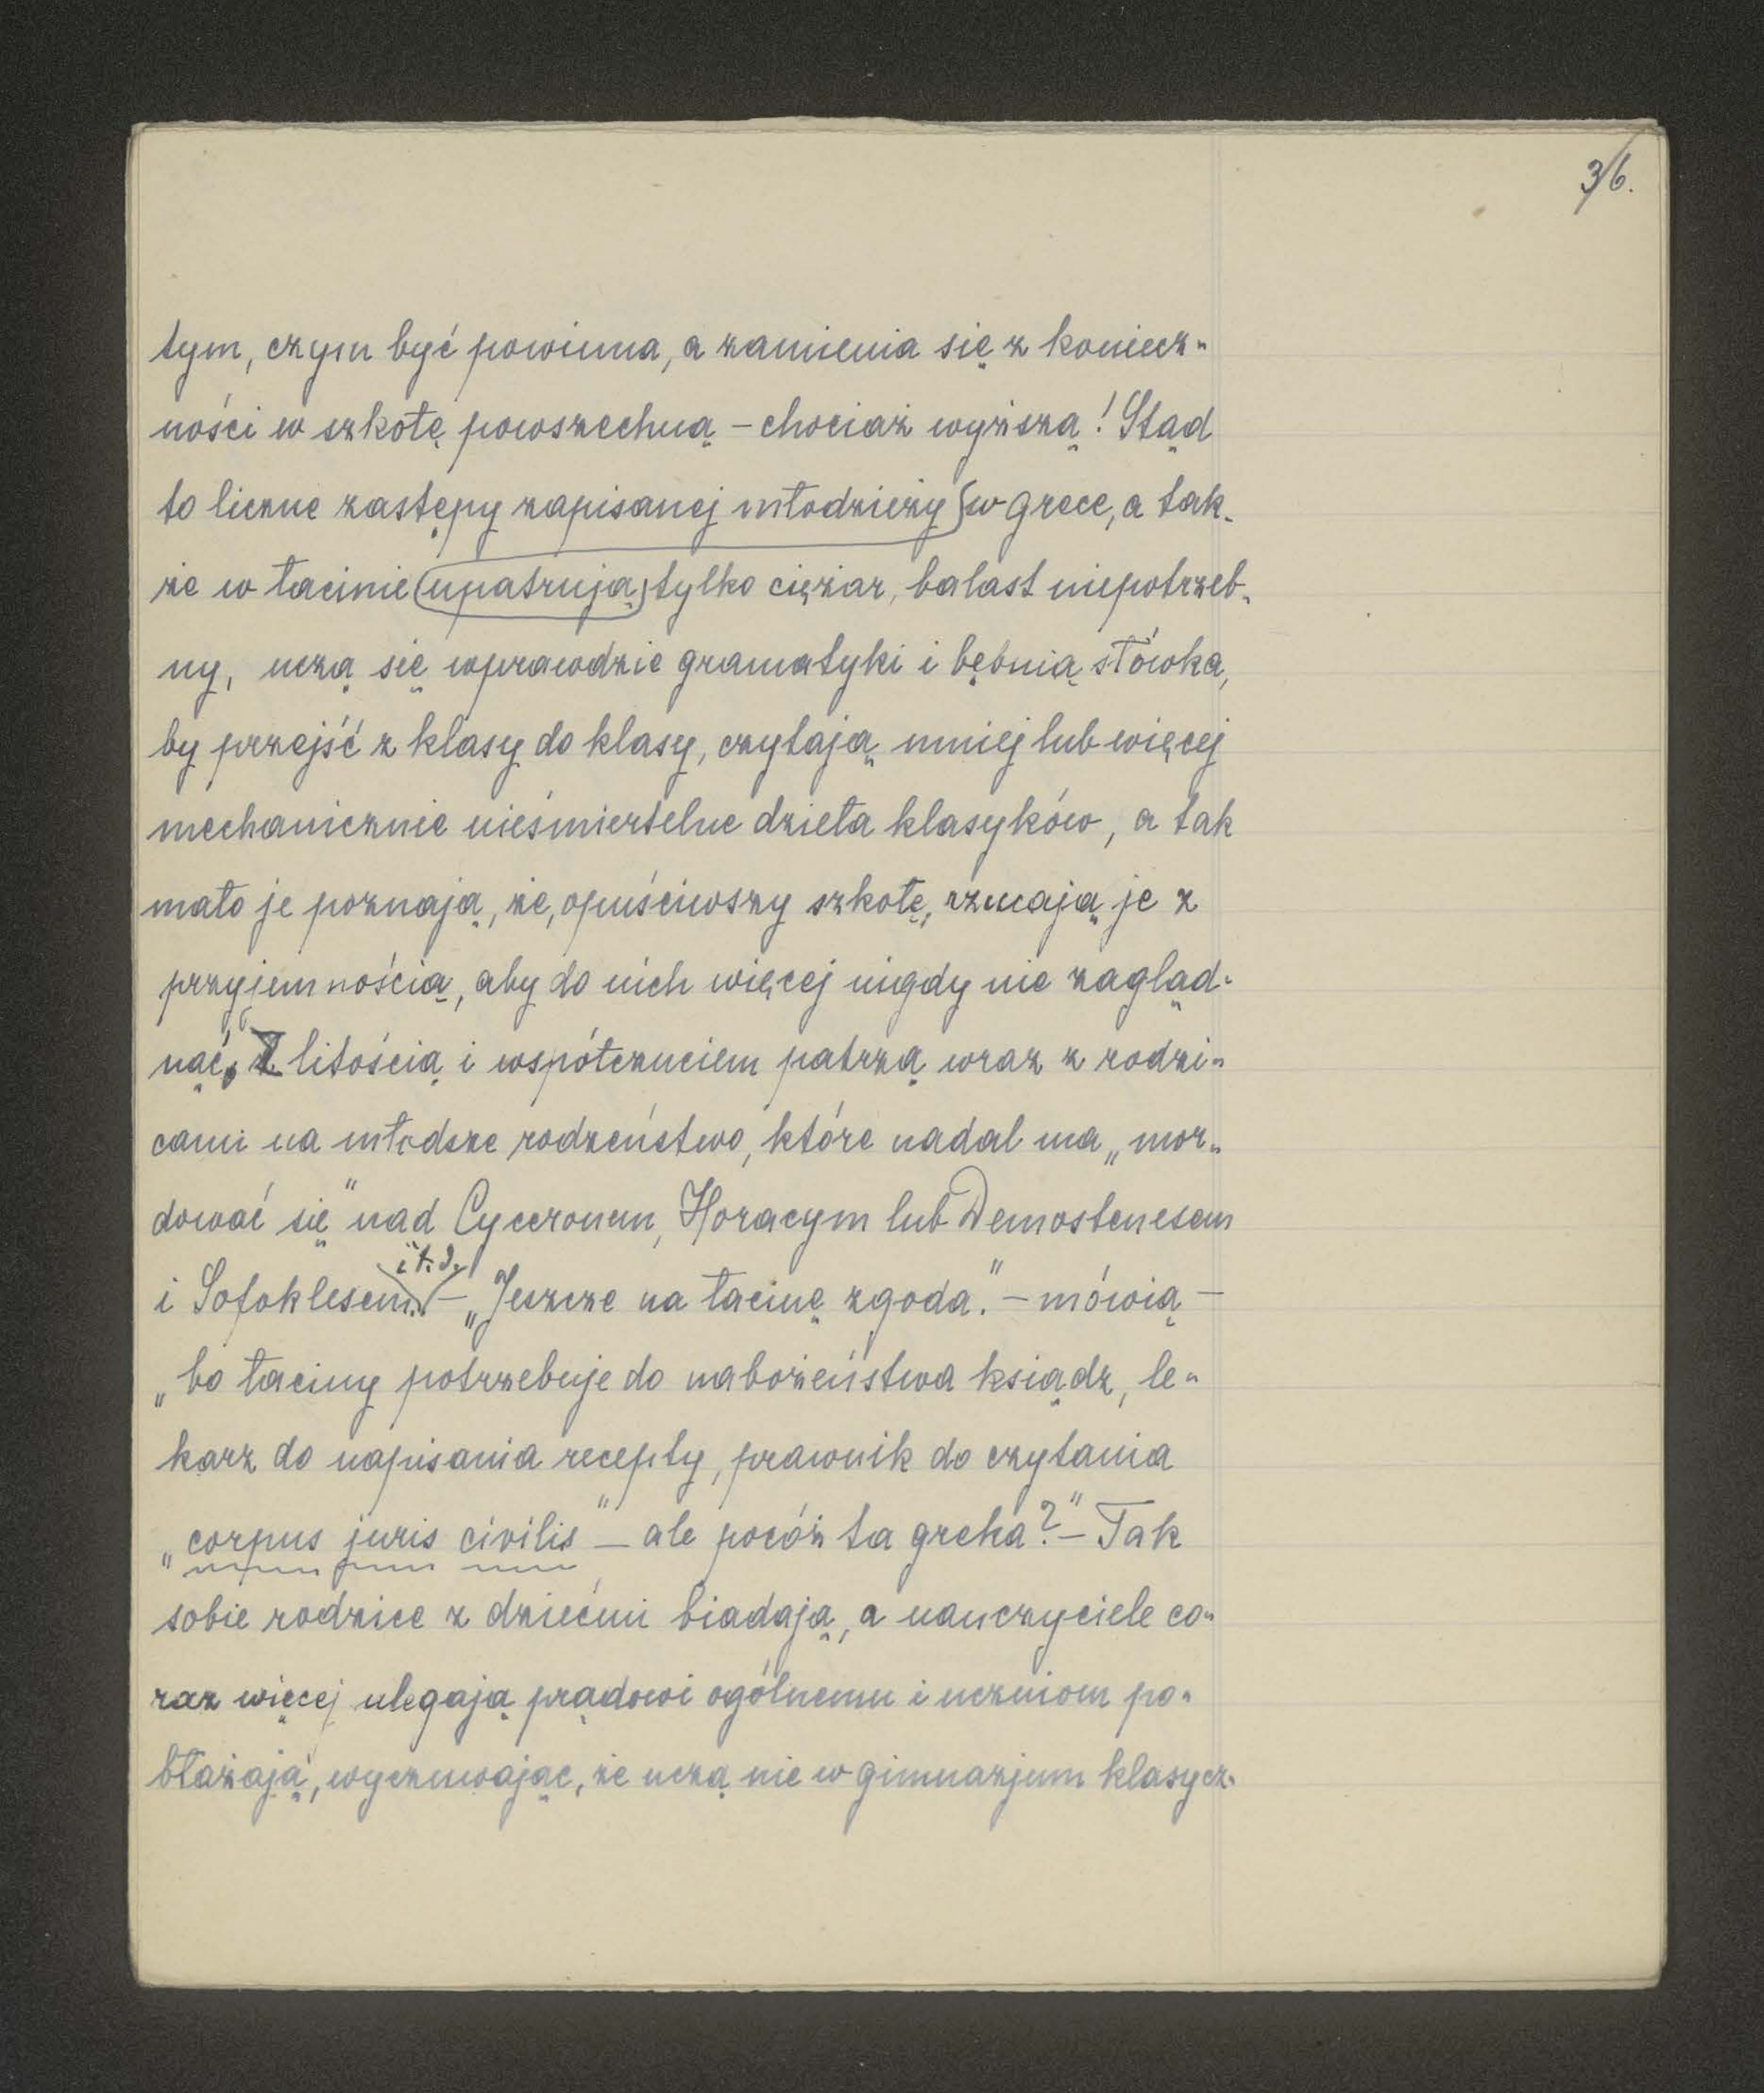 36.
tym, czym być powinna, a zamienia się z koniecz-
ności w szkołę powszechną – chociaż wyższą! Stąd
to liczne zastępy zapisanej młodzieży w grece, a tak-
że w łacinie upatrują tylko ciężar, balast niepotrzeb-
ny, uczą się wprawdzie gramatyki i bębnią słówka,
by przejść z klasy do klasy, czytają mniej lub więcej
mechanicznie nieśmiertelne dzieła klasyków, a tak
mało je poznają, że, opuściwszy szkołę, rzucają je z
przyjemnością, aby do nich więcej nigdy nie zagląd-
nąć. Z litością i współczuciem patrzą wraz z rodzi-
cami na młodsze rodzeństwo, które nadal ma „mor-
dować się" nad Cyceronem, Horacym lub Demostenesem
i Sofoklesem i t. d. – „Jeszcze na łacinę zgoda." – mówią –
„bo łaciny potrzebuje do nabożeństwa ksiądz, le-
karz do napisania recepty, prawnik do czytania
„corpus juris civilis" – ale pocóż ta greka?" – Tak
sobie rodzice z dziećmi biadają, a nauczyciele co-
raz więcej ulegają prądowi ogólnemu i uczniom po-
błażają, wyczuwając, że uczą nie w gimnazjum klasycz-